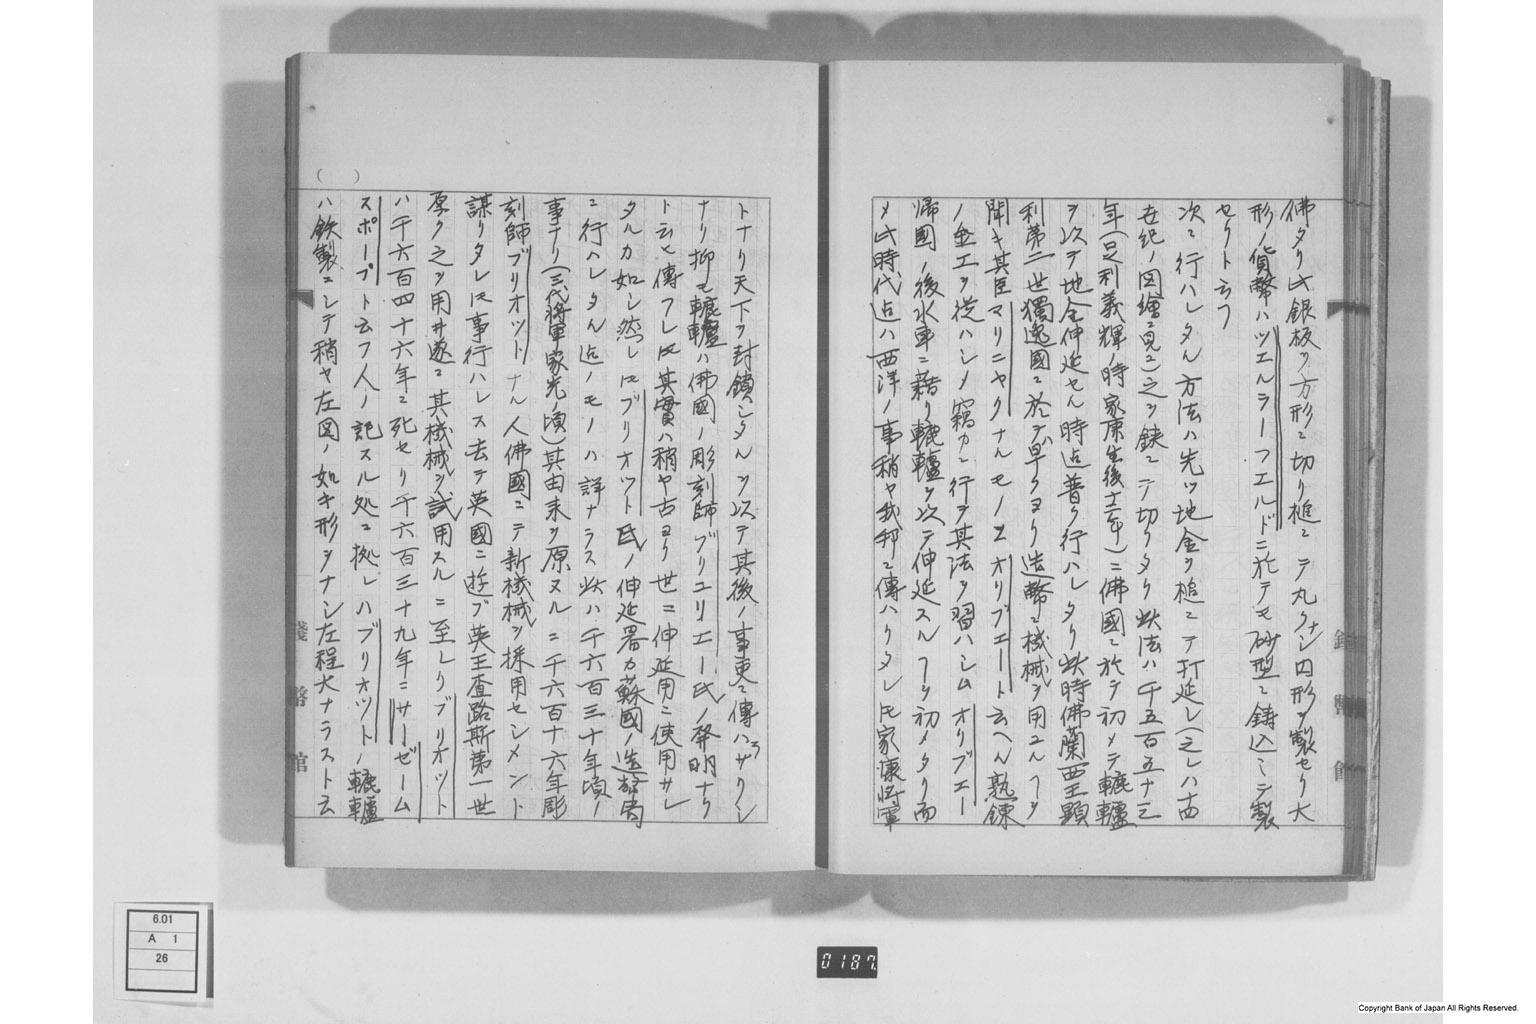 佛タリ此銀板ヲ方形ニ切リ槌ニテ丸クナシ円形ヲ製セリ大
形ノ貨幣ハツエルラーフエルドニ於テモ砂型ニ鋳込ミテ製
セリト云フ
次ニ行ハレタル方法ハ先ツ地金ヲ槌ニテ打延シ(之レハ十四
世紀ノ図絵ニ見ユ)之ヲ鋏ニテ切リタリ此法ハ千五百五十三
年(足利義輝ノ時家康生後十二年)ニ佛國ニ於テ初メテ轆轤
ヲ以テ地金伸延セル時迄普ク行ハレタリ此時佛蘭西王顕
利第二世獨逸國ニ於テハ早クヨリ造幣ニ機械ヲ用ユルヿヲ
聞キ其臣マリニヤクナルモノヱオリブエート云ヘル熟錬
ノ金工ヲ従ハシメ窃カニ行ヲ其法ヲ習ハシムオリブエー
帰國ノ後水車ニ藉リ轆轤ヲ以テ伸延スルヿヲ初メタリ而
メ此時代迄ハ西洋ノ事稍ヤ我邦ニ傳ハリタレ𪜈家康将軍
トナリ天下ヲ封鎖シタルヲ以テ其後ノ事更ニ傳ハラサリシ
ナリ抑モ轆轤ハ佛國ノ彫刻師ブリユリエー氏ノ發明ナリ
ト云ヒ傳フレ𪜈其實ハ稍ヤ古ヨリ世ニ伸延用ニ使用サレ
タルカ如シ然レ𪜈ブリオツト氏ノ伸延器カ蘇國ノ造幣局
ニ行ハレタル迄ノモノハ詳ナラス此ハ千六百三十年頃ノ
事ナリ(三代将軍家光ノ頃)其由来ヲ原ヌルニ千六百十六年彫
刻師ブリオツトナル人佛國ニテ新機械ヲ採用セシメント
謀リタレ𪜈事行ハレス去テ英國ニ遊ブ英王査路斯第一世
厚ク之ヲ用ヰ遂ニ其機械ヲ試用スルニ至レリブリオツト
ハ千六百四十六年ニ死セリ千六百三十九年ニサーゼーム
スポープト云フ人ノ記スル処ニ拠レハブリオツトノ轆轤
ハ鉄製ニシテ稍ヤ左図ノ如キ形ヲナシ左程大ナラスト云
( )
銭幣館
銭幣館
6.01
A 1
26
0187
Copyright Bank of Japan All Rights Reserved.